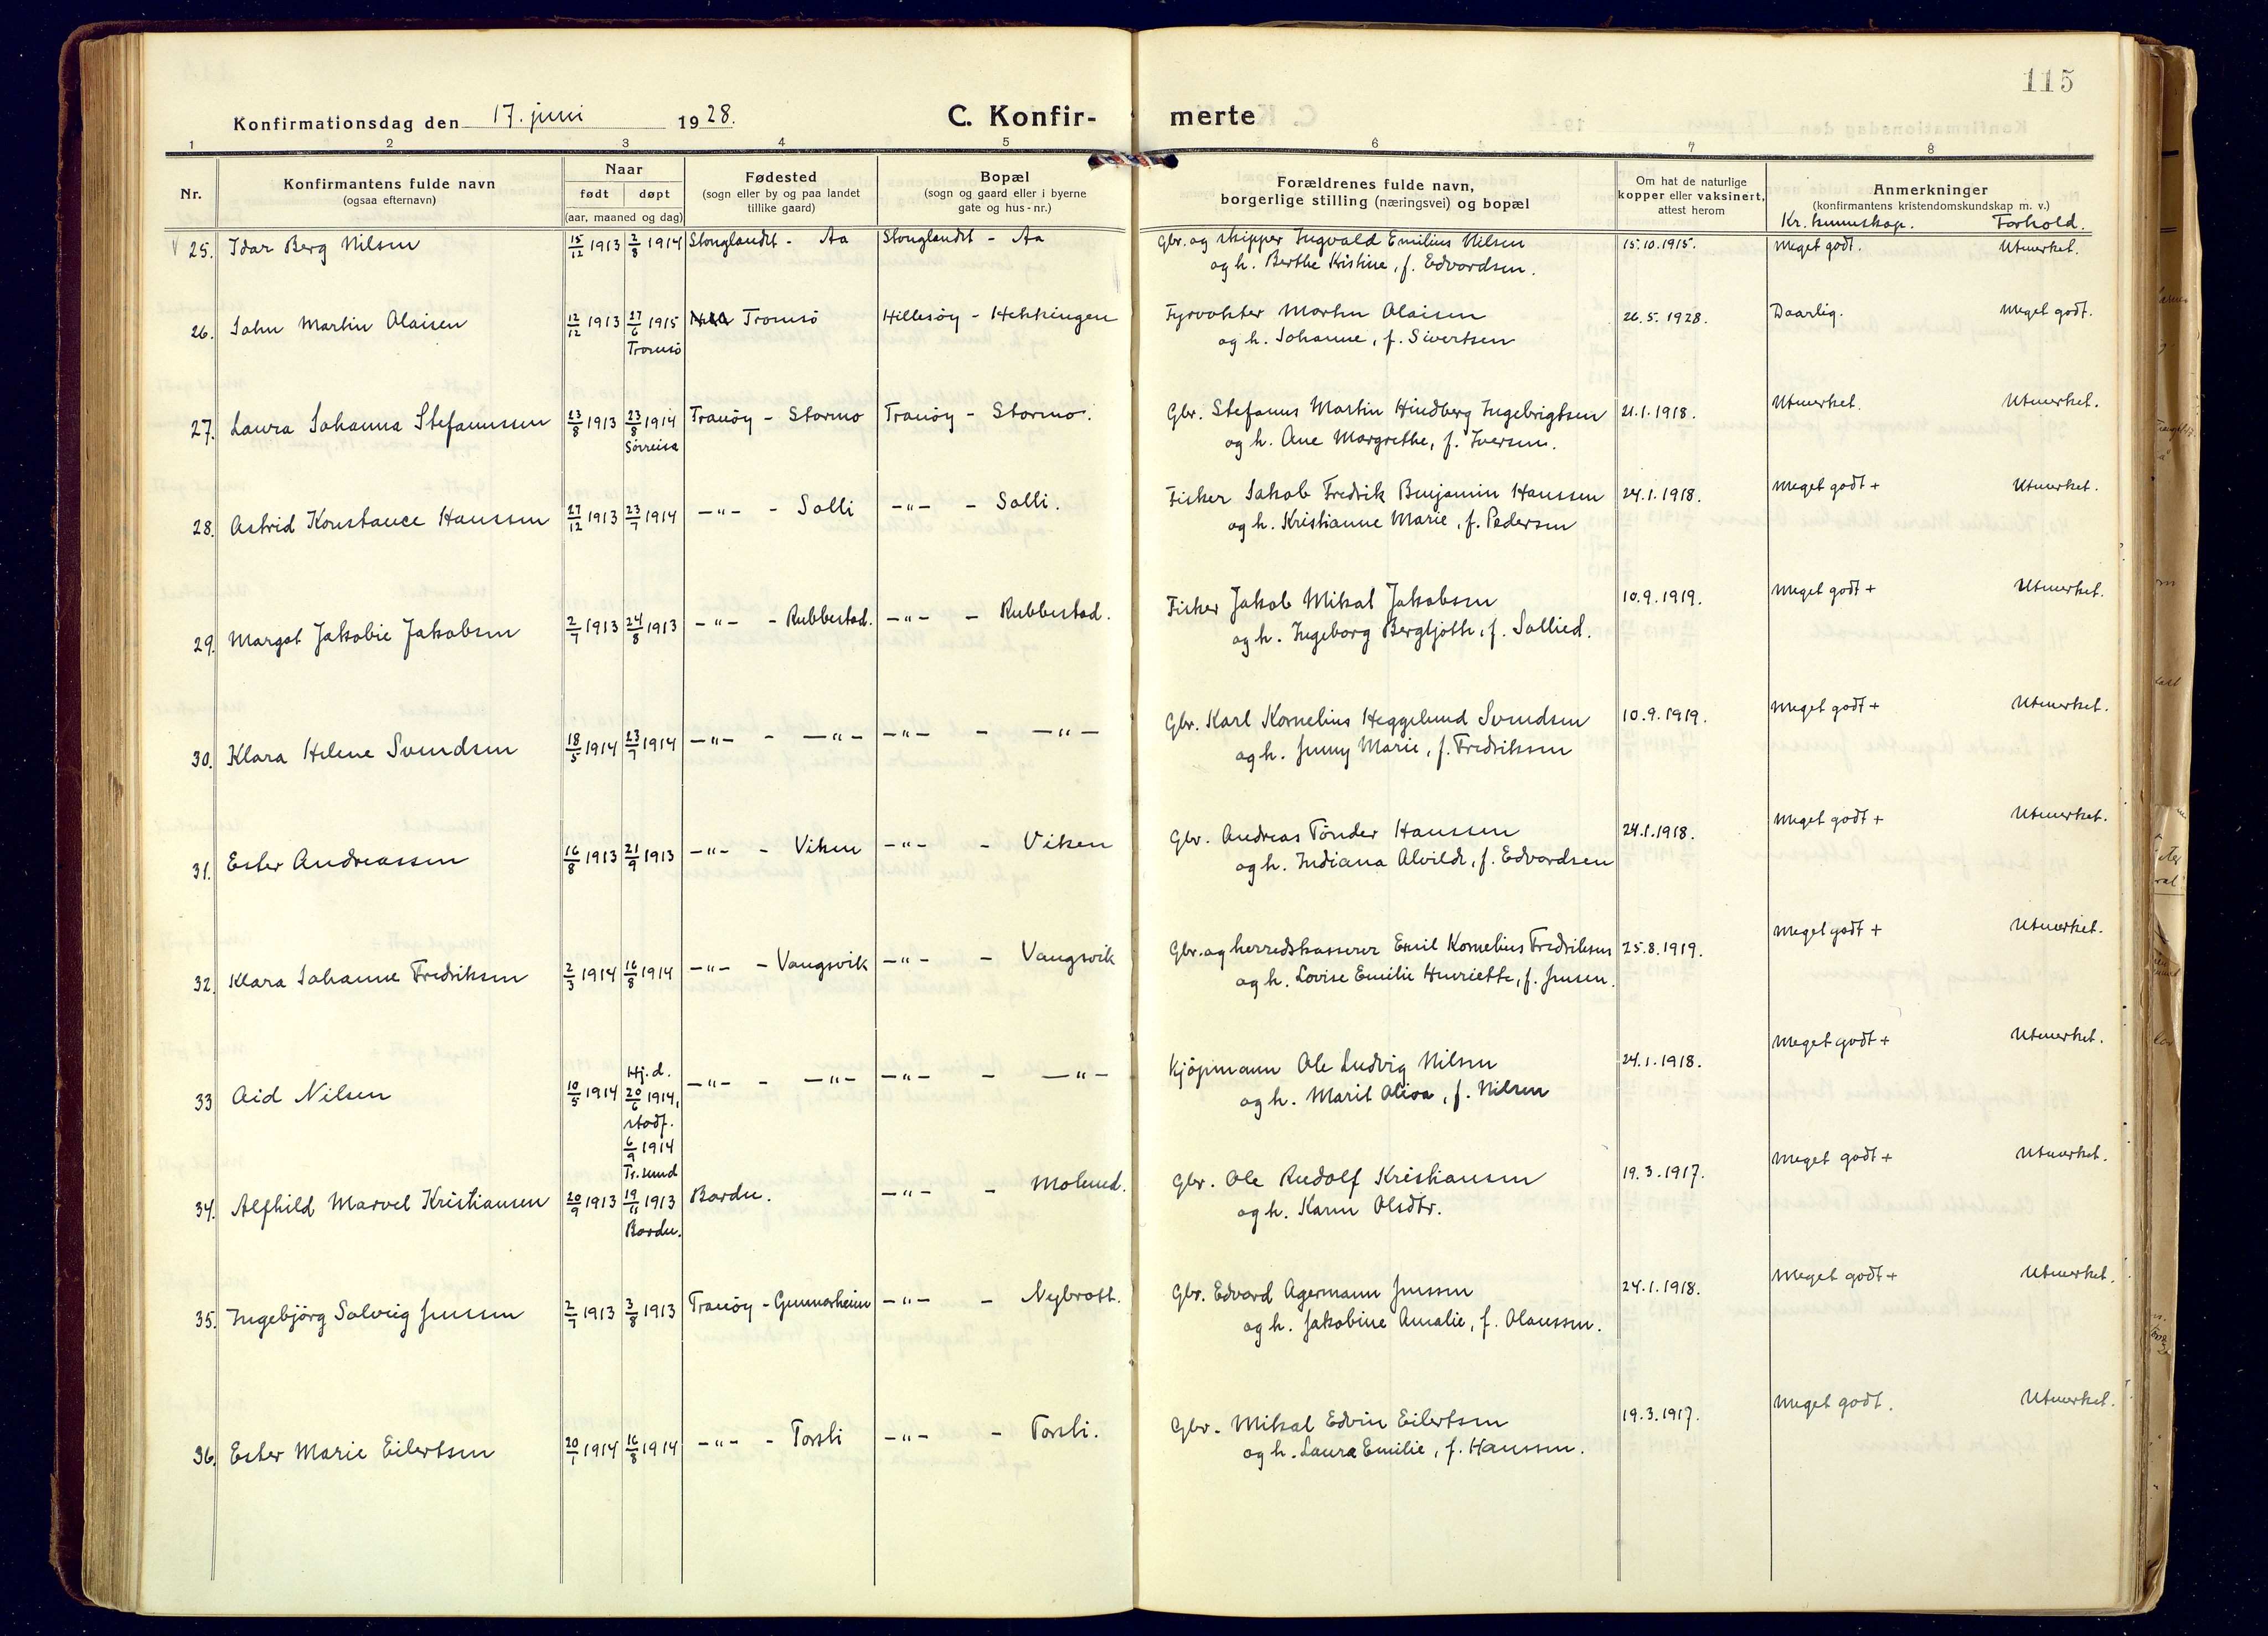 115
Konfirmationsdag den 17. juni 1928.
C. Konfir- merte
1 2 3 4 5 6 7 8
Nr.
Konfirmantens fulde navn
(ogsaa efternavn)
Naar
født døpt
(aar, maaned og dag)
Fødested
(sogn eller by og paa landet
tillike gaard)
Bopæl
(sogn og gaard eller i byerne
gate og hus-nr.)
Forældrenes fulde navn,
borgerlige stilling (næringsvei) og bopæl
Om hat de naturlige
kopper eller vaksinert,
attest herom
Anmerkninger
(konfirmantens kristendomskundskap m. v.)
Kr. kunnskap. Forhold.
25. Idar Berg Nilsen 15/12 1913 2/8 1914 Stonglandet - Aa Stonglandet - Aa Gbr. og skipper Ingvald Emilius Nilsen 15.10.1915. Meget godt. Utmerket.
og h. Berthe Kristine, f. Edvardsen.
26. John Martin Olaisen 12/12 1913 27/6 1915 Tromsö Hillesöy - Hekkingen Fyrvokter Martin Olaisen 26.5.1928. Daarlig. Meget godt.
Tromsö og h. Johanne, f. Sivertsen
27. Laura Johanna Stefanussen 23/8 1913 23/8 1914 Tranöy - Stormo Tranöy - Stormo. Gbr. Stefanus Martin Hindberg Ingebrigtsen 21.1.1918. Utmerket. Utmerket.
Sörreisa og h. Ane Margrethe, f. Iversen.
28. Astrid Konstance Hanssen 27/12 1913 23/7 1914 -"- - Solli -"- - Solli. Fisker Jakob Fredrik Benjamin Hanssen 24.1.1918. Meget godt + Utmerket.
og h. Kristianne Marie, f. Pedersen
29. Margot Jakobie Jakobsen 2/7 1913 24/8 1913 -"- - Rubbestad. -"- - Rubbestad. Fisker Jakob Mikal Jakobsen 10.9.1919. Meget godt + Utmerket.
og h. Ingeborg Bergljoth, f. Sollied.
30. Klara Helene Svendsen 18/5 1914 23/7 1914 -"- - -"- -"- - -"- Gbr. Karl Kornelius Heggelund Svendsen 10.9.1919. Meget godt + Utmerket.
og h. Jenny Marie, f. Fredriksen
31. Ester Andreassen 16/8 1913 21/9 1913 -"- - Viken -"- - Viken Gbr. Andreas Tönder Hanssen 24.1.1918. Meget godt + Utmerket.
og h. Indiana Alvilde, f. Edvardsen
32. Klara Johanne Fredriksen 2/3 1914 16/8 1914 -"- - Vangsvik -"- - Vangsvik Gbr. og herredskasserer Emil Kornelius Fredriksen 25.8.1919. Meget godt + Utmerket.
og h. Lovise Emilie Henriette, f. Jensen.
33 Aid Nilsen 10/5 1914 Hj.d. 20/6 1914, stadf. 6/9 1914 Tr.sund -"- - -"- -"- - -"- Kjöpmann Ole Ludvig Nilsen 24.1.1918. Meget godt + Utmerket.
og h. Marit Oliva, f. Nilsen
34. Alfhild Marvel Kristiansen 20/9 1913 19/11 1913 Bardu. -"- - Molund. Gbr. Ole Rudolf Kristiansen 19.3.1917. Meget godt + Utmerket.
Bardu. og h. Karen Olsdtr.
35. Ingebjörg Solveig Jenssen 2/7 1913 3/8 1913 Tranöy - Gunnarheim -"- - Nybrott. Gbr. Edvard Agermann Jenssen 24.1.1918. Meget godt + Utmerket.
og h. Jakobine Amalie, f. Olaussen.
36. Ester Marie Eilertsen 20/1 1914 16/8 1914 -"- - Torsli -"- - Torsli. Gbr. Mikal Edvin Eilertsen 19.3.1917. Meget godt. Utmerket.
og h. Laura Emilie, f. Hanssen.